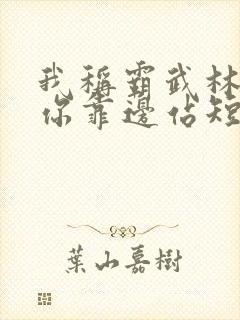 我稱霸武林
你靠邊佔短
葉山嘉樹